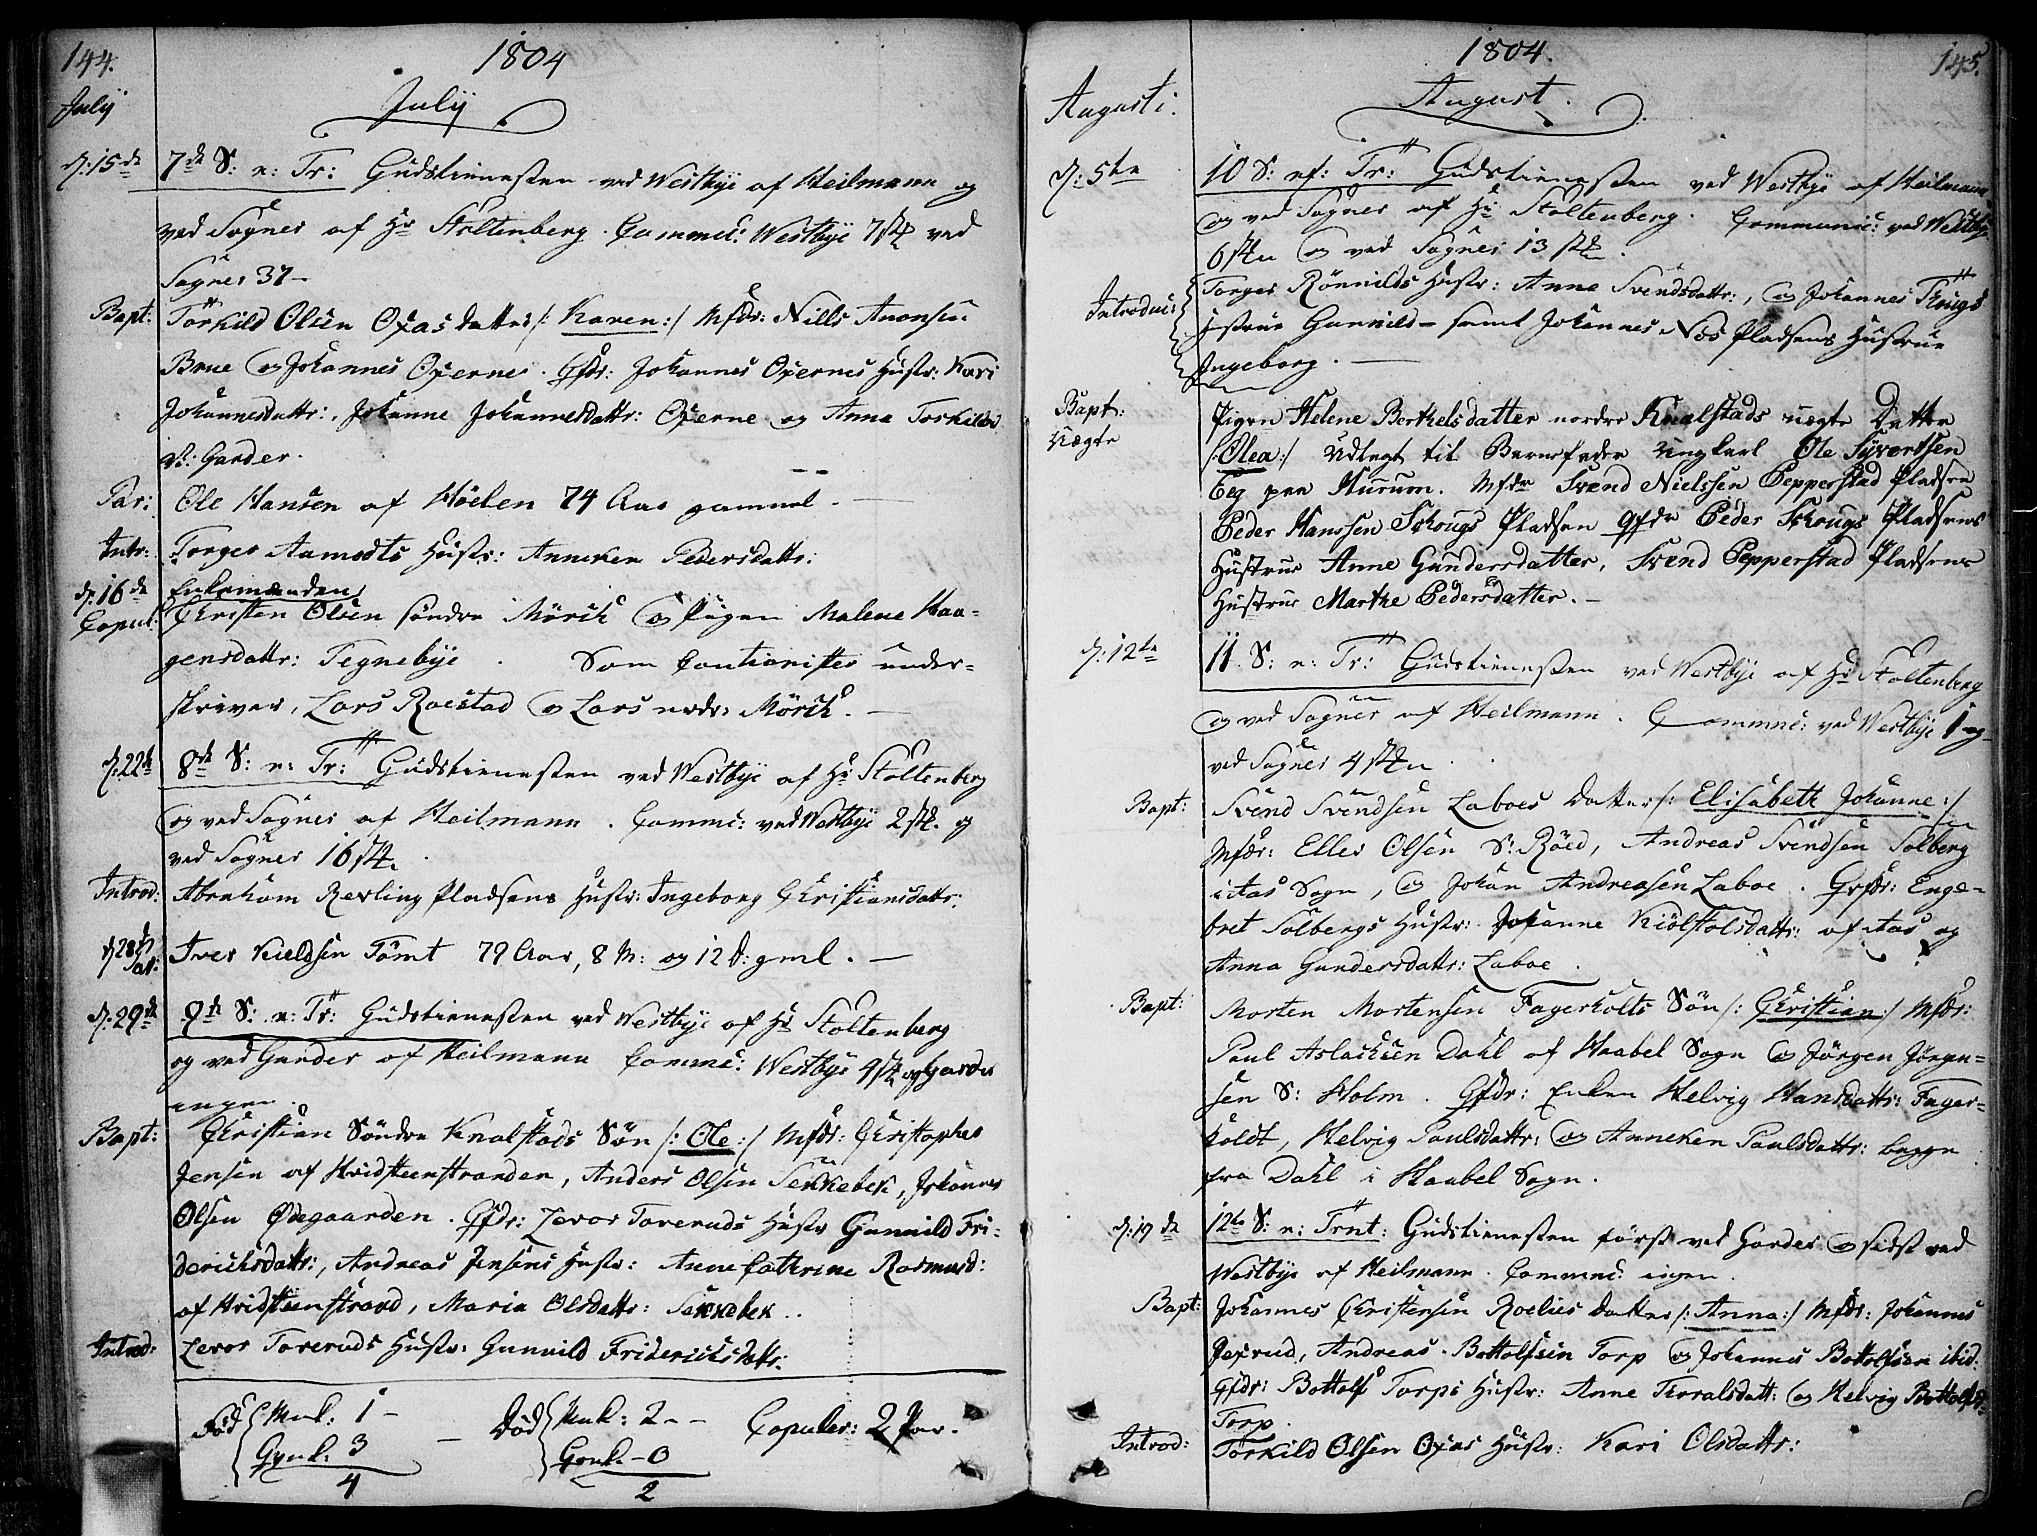 144.
1804
July
July
d: 15de 7de S: n: Tr: Gudstienesten ved Westbye af Heilmann og
ved Sogner af Hr Stoltenberg. Commc: Westbye 7 stk ved
Sogner 37 –
Bapt: Torkild Olsen Oxas datter /: Karen :/ Mfdr: Nills Anonsen
Brue og Johannes Oxernes. Qfdr: Johannes Oxernes Hustr: Kari
Johannesdattr:, Johanne Johannesdattr: Oxerne og Anne Torkilds
v: Garder.
Par: Ole Hansen af Höelen 74 Aar gammel –
Intr: Torger Aamodts Hustr: Anneken Pedersdattr:
d: 16de Enkemanden
Copul: Christen Olsen söndre Mörch og Pigen Malene Haa-
gensdattr: Tegnebye . Som Cautionister under-
skriver, Lars Roestad og Lars nedr: Mörch. –
d: 22de 8de S: n: Tr: Gudstienesten ved Westbye af Hr Stoltenberg
og ved Sogner af Heilmann. Commc: ved Westbye 2 stk. og
ved Sogner 16 stk.
Introd: Abraham Revling Pladsens Hustr: Ingeborg Christiansdattr:
d 28de Iver Kieldsen Tömt 79 Aar, 8 M: og 12 D: gml. –
d: 29de 9de S: n: Tr: Gudstienesten ved Westbye af Hr Stoltenberg
og ved Garder af Heilmann Commc: Westbye 4 stk og Garder
ingen.
Bapt: Christian Söndre Knalstads Sön /: Ole :/ Mfdr: Christopher
Jensen af Hvidsteenstranden, Anders Olsen Sekkebek, Johannes
Olsen Ødegaarden. Qfdr: Levor Toveruds Hustr Gunnild Fri-
derichsdattr:, Andreas Jensens Hustr: Anne Cathrine Rasmusd:
af Hvidsteenstrand, Maria Olsdattr: Sekkebek.
Introd: Levor Toveruds Hustr: Gunnild Friderichsdattr:
Fød Mnk: 1 – Død Mnk: 2 – – Copuler: 2 Par.
Gynk: 3 – Gynk – 0
4 2
1804.
145.
Augusti.
August.
d: 5te 10 S: ef: Tr: Gudstienesten ved Westbye af Heilmann
og ved Sogner af Hr Stoltenberg. Communic: ved Westbye
6 stk og ved Sogner 13 stk.
Introduc: Torger Rönnilds Hustr: Anne Svendsdattr:, og Johannes Krugs
Hustrue Gunnild – samt Johannes Nøs Pladsens Hustrue
Ingeborg. –
Bapt: Pigen Helene Berthelsdatter nordre Knalstads uægte Datter
uægte /: Olea :/ Udlagt til Barnefader Ungkarl Ole Syvertsen
Eeg paa Hurum. Mfdr Svend Nielssen Pepperstad Pladsen
Peder Hanssen Skougs Pladsen Qfdr Peder Skougs Pladsens
Hustrue Anne Gundersdatter, Svend Pepperstad Pladsens
Hustrue Marthe Pedersdatter. –
d: 12te 11. S: n: Tr: Gudstienesten ved Westbye af Hr Stoltenberg
og ved Sogner af Heilmann. Commnc: ved Westbye 1 og
ved Sogner 4 stk.
Bapt: Svend Svendsen Laboes datter /: Elisabeth Johanne :/
Mfdr: Elles Olsen S: Röed, Andreas Svendsen Solberg
i Aas Sogn, og Johan Andreasen Laboe. Qvfdr: Enge-
bret Solbergs Hustr: Johanne Kiölstolsdattr: af Aas og
Anna Gundersdattr: Laboe.
Bapt: Morten Mortensen Fagerholts Sön /: Christian :/ Mfdr:
Paul Aslachsen Dahl af Haabel Sogn og Jörgen Jörgen-
sen S: Holm. Qfdr: Enken Helvig Hansdattr: Fager-
holdt, Helvig Paulsdattr: og Anneken Paulsdattr: begge
fra Dahl i Haabel Sogn.
d: 19de 12te S: n: Trnt: Gudstienesten först ved Garder og sidst ved
Westbye af Heilmann. Commnc: ingen.
Bapt: Johannes Christensen Roelies datter /: Anna :/ Mfdr: Johannes
Jexrud, Andreas Bottolfsen Torp og Johannes Bottolfsen ibid:
Qfdr: Bottolf Torps Hustr: Anne Toralsdatt: og Helvig Bottolfsd:
Torp.
Introd: Torkild Olsen Oxas Hustr: Kari Olsdattr: